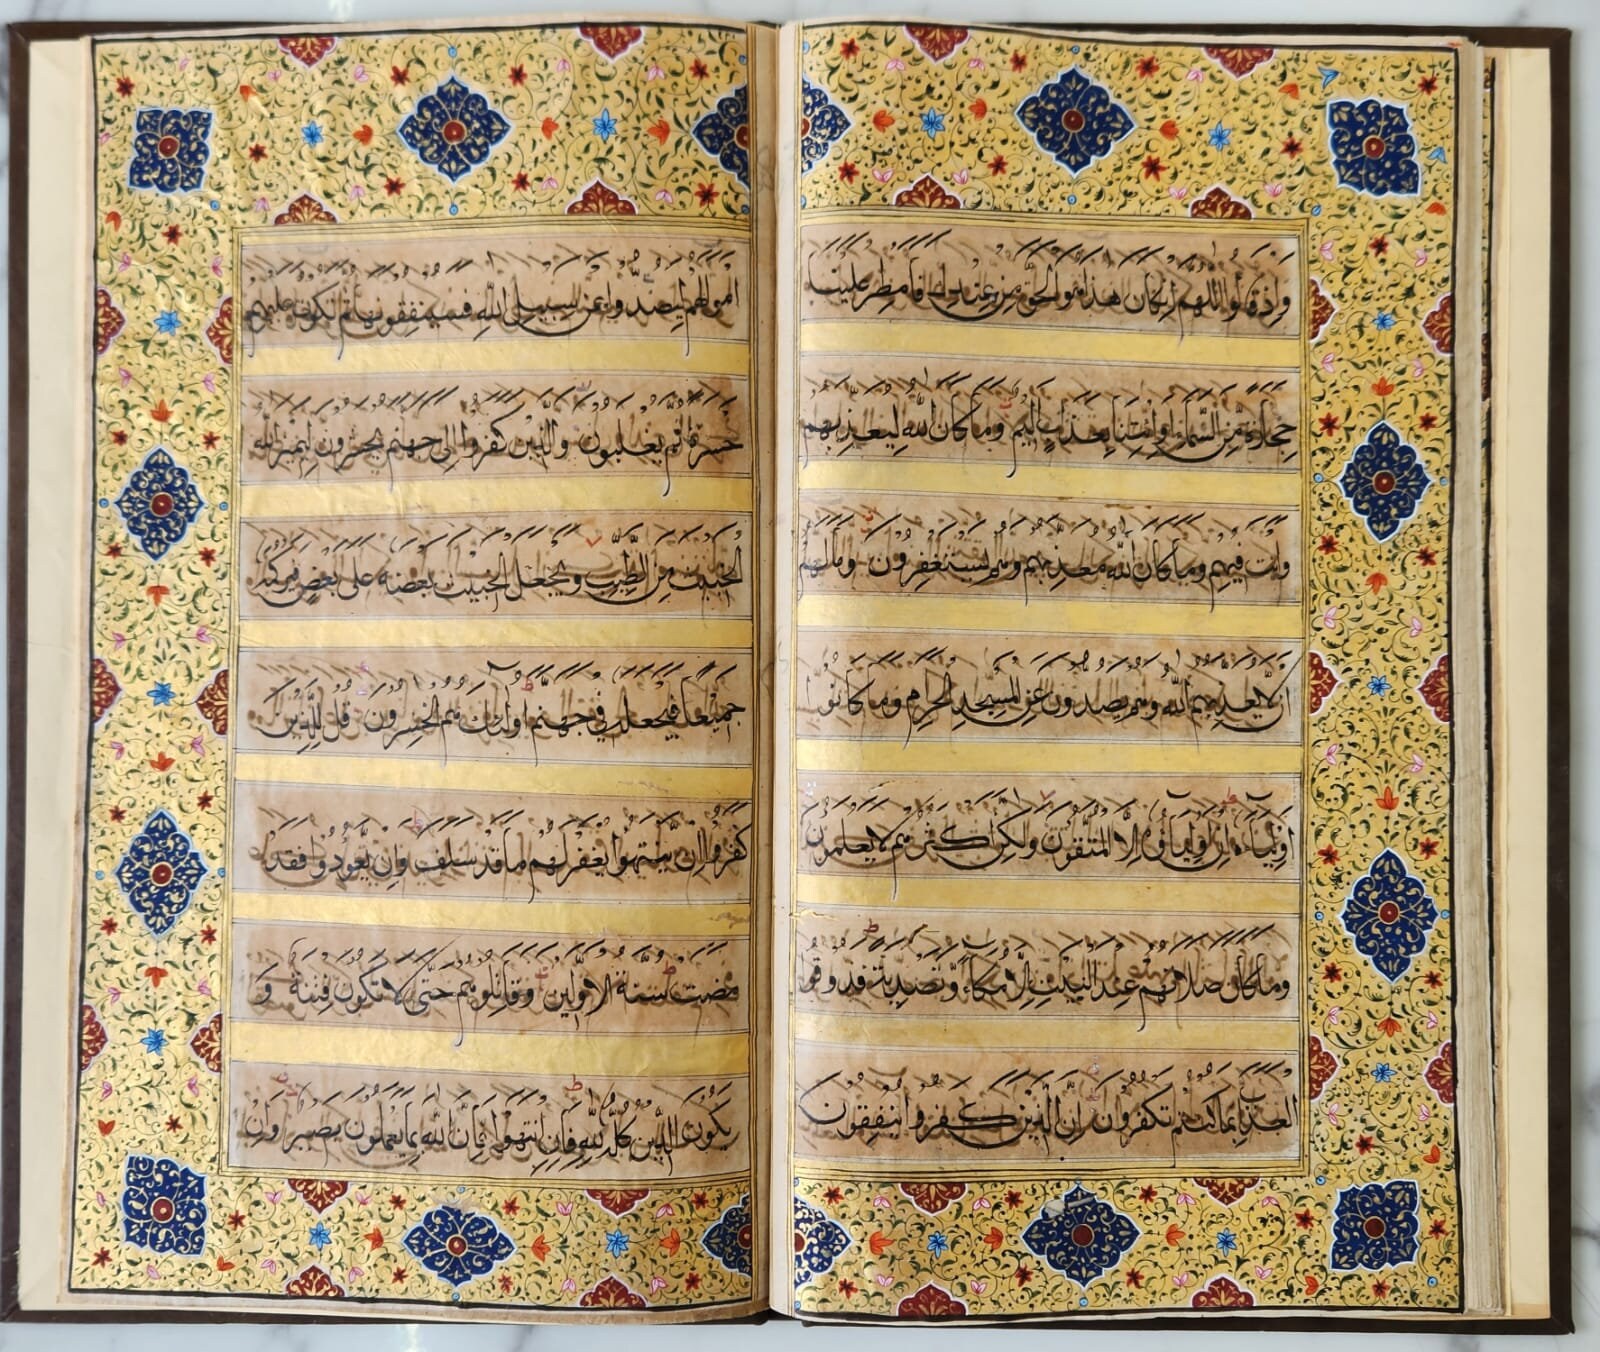 وَإِذْ قَالُوا اللَّهُمَّ إِنْ كَانَ هَذَا هُوَ الْحَقَّ مِنْ عِنْدِكَ فَأَمْطِرْ عَلَيْنَا
حِجَارَةً مِنَ السَّمَاءِ أَوِ ائْتِنَا بِعَذَابٍ أَلِيمٍ وَمَا كَانَ اللَّهُ لِيُعَذِّبَهُمْ
وَأَنْتَ فِيهِمْ وَمَا كَانَ اللَّهُ مُعَذِّبَهُمْ وَهُمْ يَسْتَغْفِرُونَ وَمَا لَهُمْ
أَلَّا يُعَذِّبَهُمُ اللَّهُ وَهُمْ يَصُدُّونَ عَنِ الْمَسْجِدِ الْحَرَامِ وَمَا كَانُوا
أَوْلِيَاءَهُ إِنْ أَوْلِيَاؤُهُ إِلَّا الْمُتَّقُونَ وَلَكِنَّ أَكْثَرَهُمْ لَا يَعْلَمُونَ
وَمَا كَانَ صَلَاتُهُمْ عِنْدَ الْبَيْتِ إِلَّا مُكَاءً وَتَصْدِيَةً فَذُوقُوا
الْعَذَابَ بِمَا كُنْتُمْ تَكْفُرُونَ إِنَّ الَّذِينَ كَفَرُوا يُنْفِقُونَ
أَمْوَالَهُمْ لِيَصُدُّوا عَنْ سَبِيلِ اللَّهِ فَسَيُنْفِقُونَهَا ثُمَّ تَكُونُ عَلَيْهِمْ
حَسْرَةً ثُمَّ يُغْلَبُونَ وَالَّذِينَ كَفَرُوا إِلَى جَهَنَّمَ يُحْشَرُونَ لِيَمِيزَ اللَّهُ
الْخَبِيثَ مِنَ الطَّيِّبِ وَيَجْعَلَ الْخَبِيثَ بَعْضَهُ عَلَى بَعْضٍ فَيَرْكُمَهُ
جَمِيعًا فَيَجْعَلَهُ فِي جَهَنَّمَ أُولَئِكَ هُمُ الْخَسِرُونَ قُلْ لِلَّذِينَ
كَفَرُوا إِنْ يَنْتَهُوا يُغْفَرْ لَهُمْ مَا قَدْ سَلَفَ وَإِنْ يَعُودُوا فَقَدْ
مَضَتْ سُنَّةُ الْأَوَّلِينَ وَقَاتِلُوهُمْ حَتَّى لَا تَكُونَ فِتْنَةٌ وَ
يَكُونَ الدِّينُ كُلُّهُ لِلَّهِ فَإِنِ انْتَهَوْا فَإِنَّ اللَّهَ بِمَا يَعْمَلُونَ بَصِيرٌ وَإِنْ